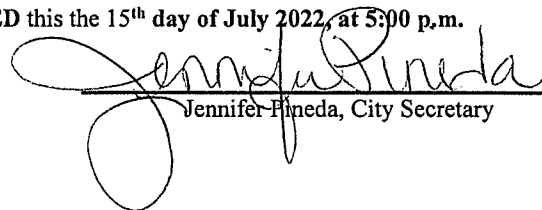 ED this the 15th day of July 2022, at 5:00 p.m.
Jennifer Pineda
Jennifer Pineda, City Secretary